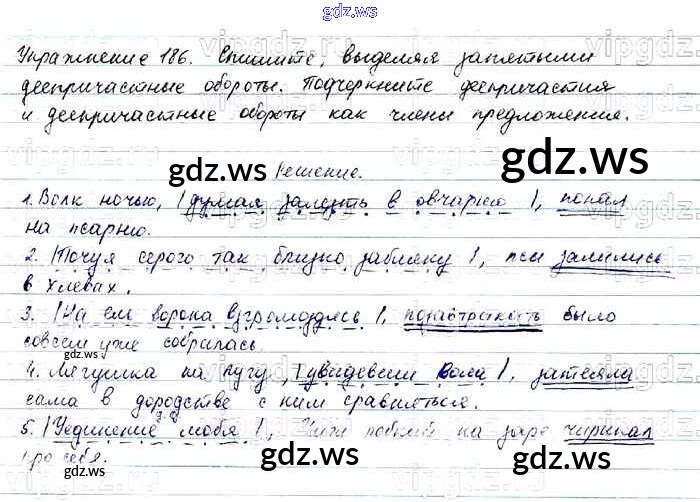 gdz.ws
Упражнение 186. Спишите, выделяя запятыми
деепричастные обороты. Подчеркните деепричастия
и деепричастные обороты как члены предложения.
gdz.ws gdz.ws
Решение.
1. Волк ночью, |думая залезть в овчарню|, попал
на псарню.
2. |Почуя серого так близко забияку|, псы залились
в хлевах.
3. |На ель ворона взгромоздясь|, позавтракать было
совсем уже собралась.
gdz.ws
4. Лягушка на лугу, |увидевши вола|, затеяла
сама в дородстве с ним сравняться.
5. |Уединение любя|, Чиж робкий на заре чирикал
про себя.
gdz.ws
gdz.ws
gdz.ws